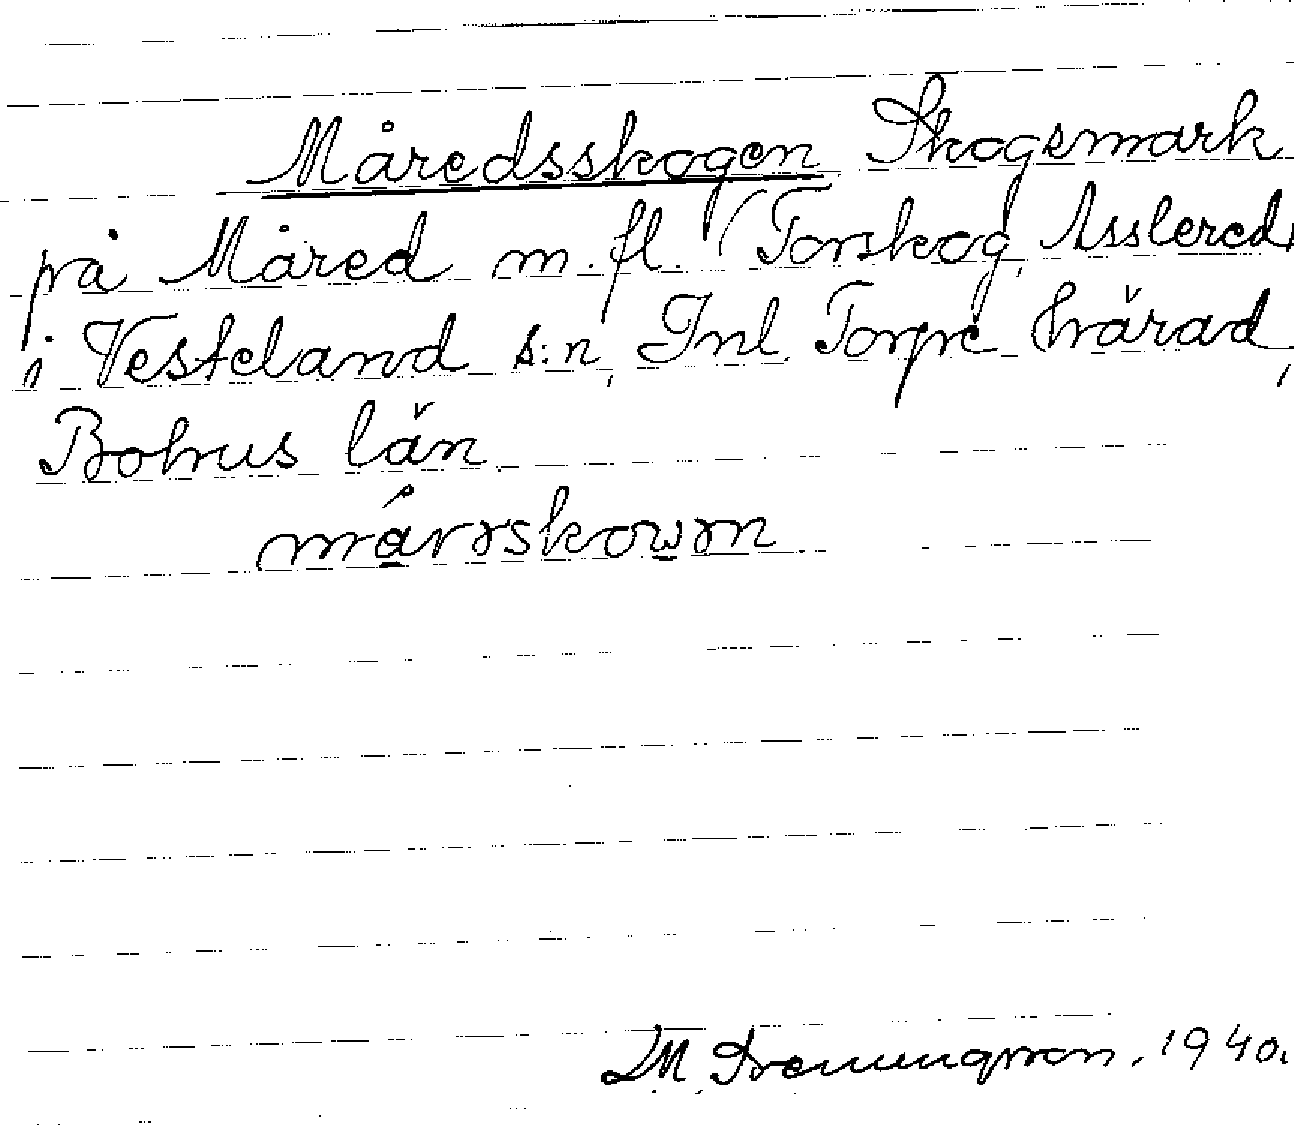 Måredsskogen Skogsmark
på Måred m.fl. (Torskog, Asslered)
i Vesteland s:n, Inl. Torpe härad,
Bohus län
1940.